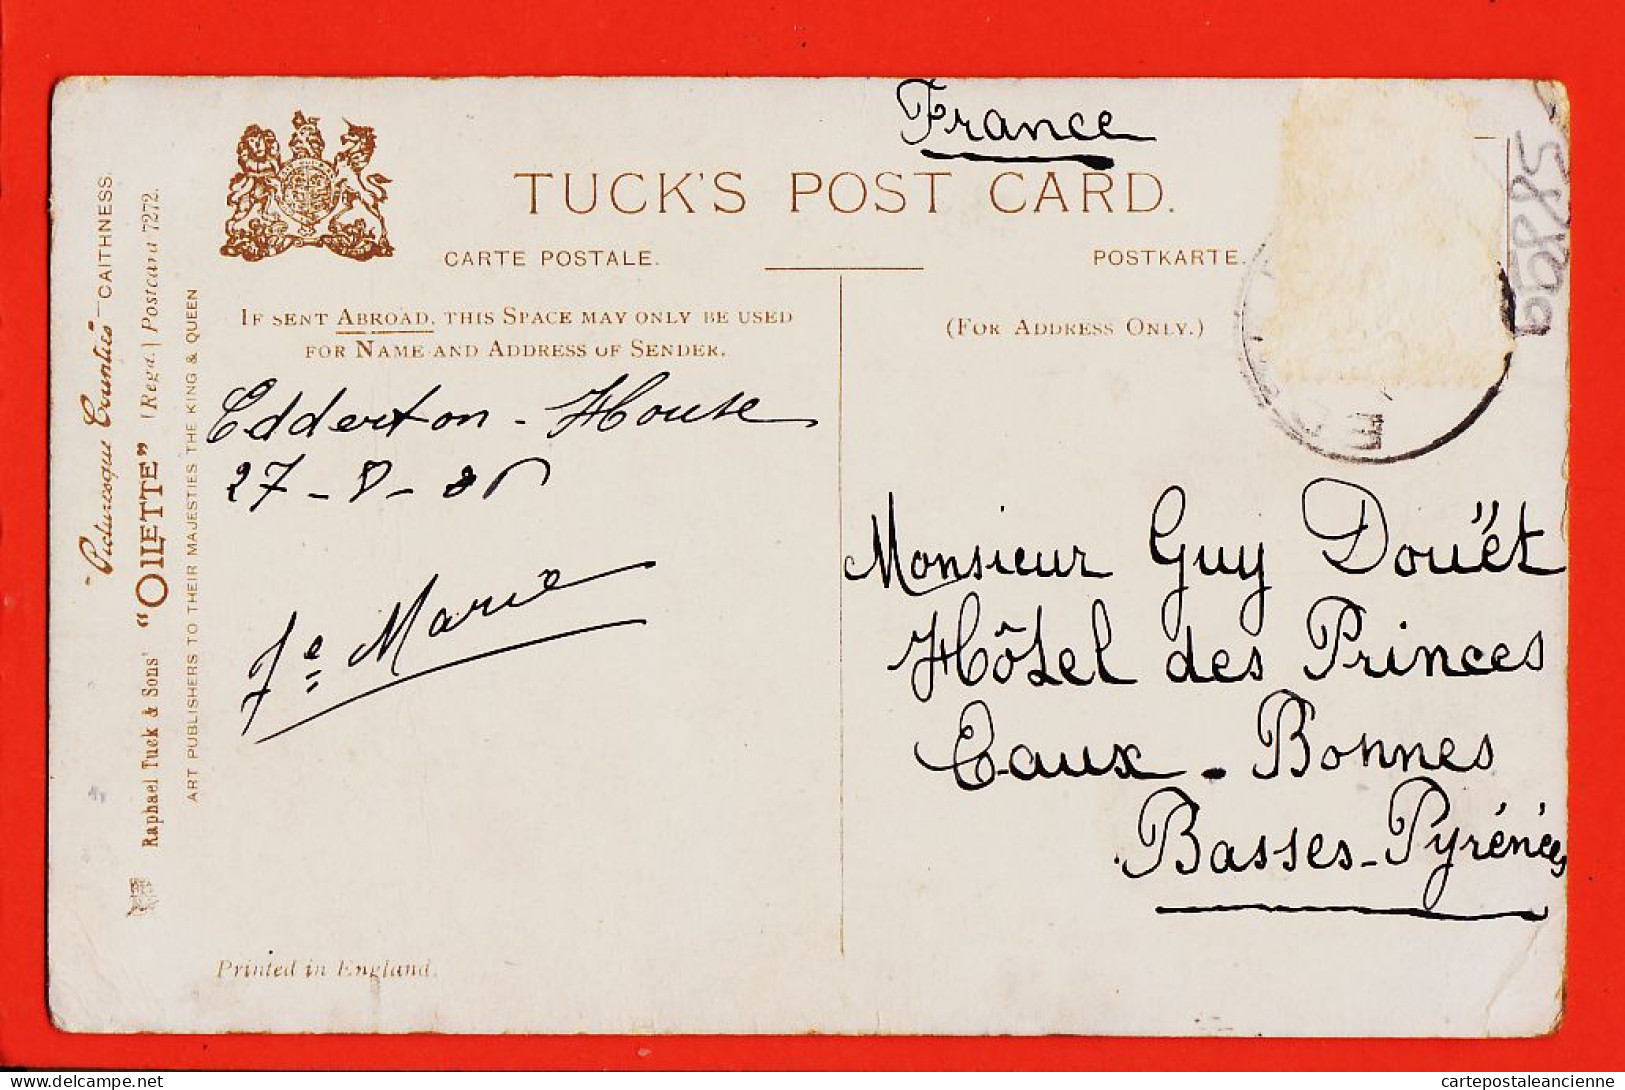 France
TUCK'S POST CARD.
CARTE POSTALE.
POSTKARTE.
IF SENT ABROAD, THIS SPACE MAY ONLY BE USED
FOR NAME AND ADDRESS OF SENDER.
(FOR ADDRESS ONLY.)
Edderton - House
27 - 8 -
Marie
Monsieur Guy Douët
Hôtel des Princes
Eaux - Bonnes
Basses - Pyrénées
"Picturesque Counties" CAITHNESS.
Raphael Tuck & Sons' "OILETTE" (Regd.) Postcard 7272.
ART PUBLISHERS TO THEIR MAJESTIES THE KING & QUEEN
Printed in England.
cartepostaleancienne
cartepostaleancienne